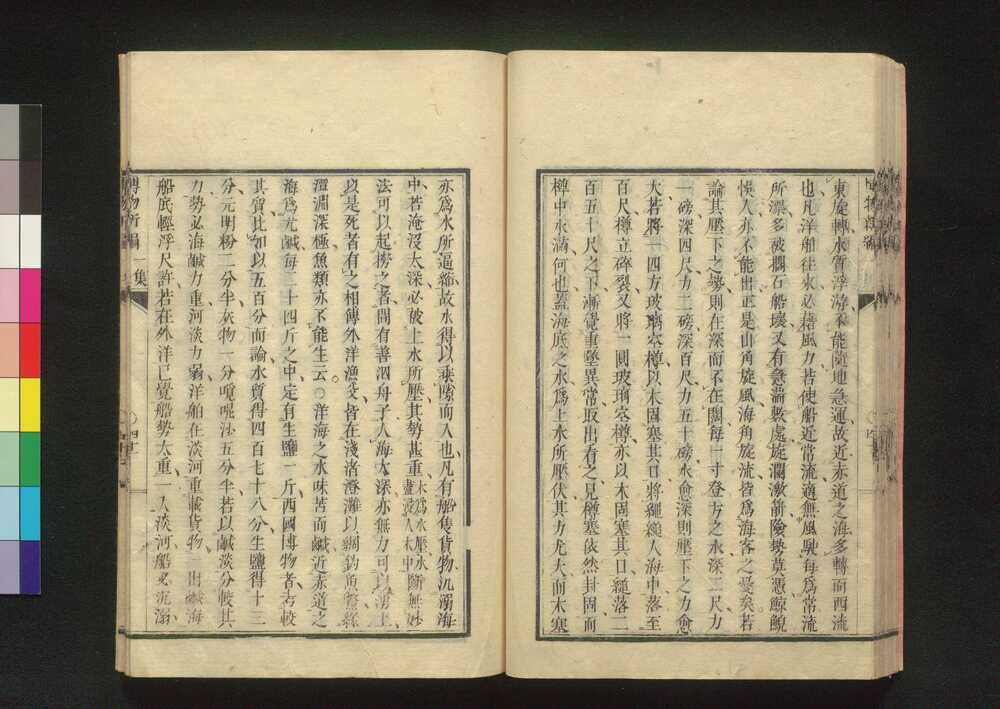 東旋轉水質浮游不能隨地急運故近赤道之海多轉而西流
也凡洋舶往來必藉風力若使船近常流適無風駛每為常流
所漂多被擱石船壞又有急湍數處旋瀾激箭險勢莫憑鯨鯢
悞人亦不能出正是山角旋風海角旋流皆為海客之憂矣若
論其壓下之勢則在深而不在闊每一寸登方之水深二尺力
一磅深四尺力二磅深百尺力五十磅水愈深則壓下之力愈
大若將一四方玻璃空樽以木固塞其口將繩縋入海中落至
百尺樽立碎裂又將一圓玻璃空樽亦以木固塞其口縋落二
百五十尺之下漸覺重墜異常取出看之見樽塞依然封固而
樽中水滿何也蓋海底之水為上水所壓伏其力尤大而木塞
亦為水所逼縮故水得以乘隙而入也凡有船隻貨物沉溺海
中若淹沒太深必被上水所壓其勢甚重木為水壓水盡浸入木中斷無妙
法可以起撈之者間有善泅舟子入海太深亦無力可以湧上
以是死者有之相傳外洋漁人皆在淺渚澄灘以網釣魚若
潭淵深極魚類亦不能生云○洋海之水味苦而鹹近赤道之
海為尤鹹每二十四斤之中定有生鹽一斤西國博物者考較
其質比如以五百分而論水質得四百七十八分生鹽得十三
分元明粉二分半灰物一分嘅呢沙五分半若以鹹淡分較其
力勢必海鹹力重河淡力弱洋舶在淡河重載貨物一出鹹海
船底輕浮尺許若在外洋已覺船勢太重一入淡河船必沉溺
博物新編 一集